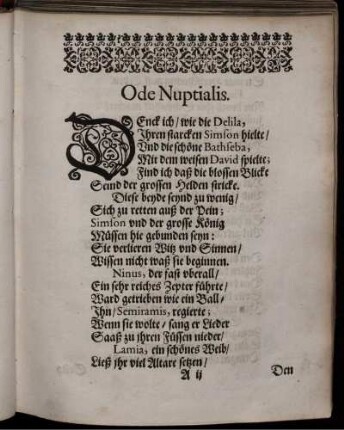 Ode Nuptialis.
DEnck ich / wie die Delila,
Ihren starcken Simson hielte /
Vnd die schöne Bathseba,
Mit dem weisen David spielte;
Find ich daß die blossen Blicke
Seind der grossen Helden stricke.
Diese beyde seynd zu wenig /
Sich zu retten auß der Pein;
Simson vnd der grosse König
Müssen hie gebunden seyn:
Sie verlieren Witz vnd Sinnen /
Wissen nicht waß sie beginnen.
Ninus, der fast vberall /
Ein sehr reiches Zepter führte /
Ward getrieben wie ein Ball /
Ihn / Semiramis, regierte;
Wenn sie wolte / sang er Lieder
Saaß zu ihren Füssen nieder /
Lamia, ein schönes Weib /
Ließ jhr viel Altare setzen /
A ij
Den